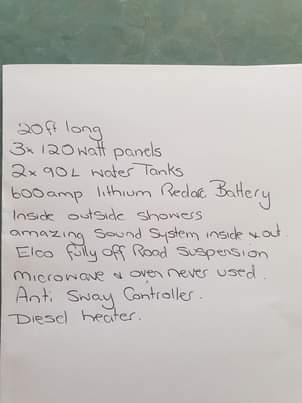 20ft long
3x 120 watt panels
2x 90L water Tanks
600amp lithium Redarc Battery
Inside outside showers
amazing Sound System inside & out.
Elco fully off Road Suspension
microwave & oven never used.
Anti Sway Controller.
Diesel heater.